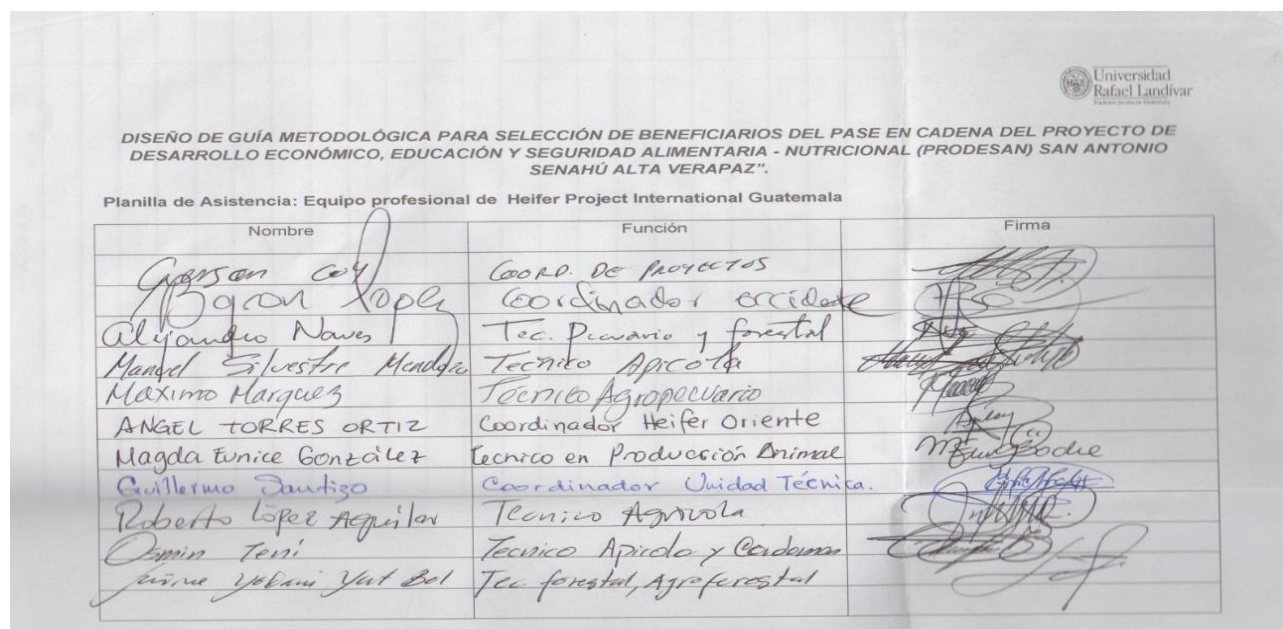 Universidad
Rafael Landívar
DISEÑO DE GUÍA METODOLÓGICA PARA SELECCIÓN DE BENEFICIARIOS DEL PASE EN CADENA DEL PROYECTO DE
DESARROLLO ECONÓMICO, EDUCACIÓN Y SEGURIDAD ALIMENTARIA - NUTRICIONAL (PRODESAN) SAN ANTONIO
SENAHÚ ALTA VERAPAZ".
Planilla de Asistencia: Equipo profesional de Heifer Project International Guatemala
Nombre Función Firma
Gerson Coy COORD. DE PROYECTOS
Byron Lopez Coordinador occidente
Alejandro Naves Tec. Pecuario y forestal
Manuel Silvestre Tecnico Apicola
Maximo Marquez Técnico Agropecuario
ANGEL TORRES ORTIZ Coordinador Heifer Oriente
Magda Eunice González Tecnico en Producción Animal
Guillermo Santizo Coordinador Unidad Técnica.
Roberto López Aguilar Tecnico Agricola
Osmin Tení Tecnico Apicola y
Yat Bol Tec forestal, Agroforestal